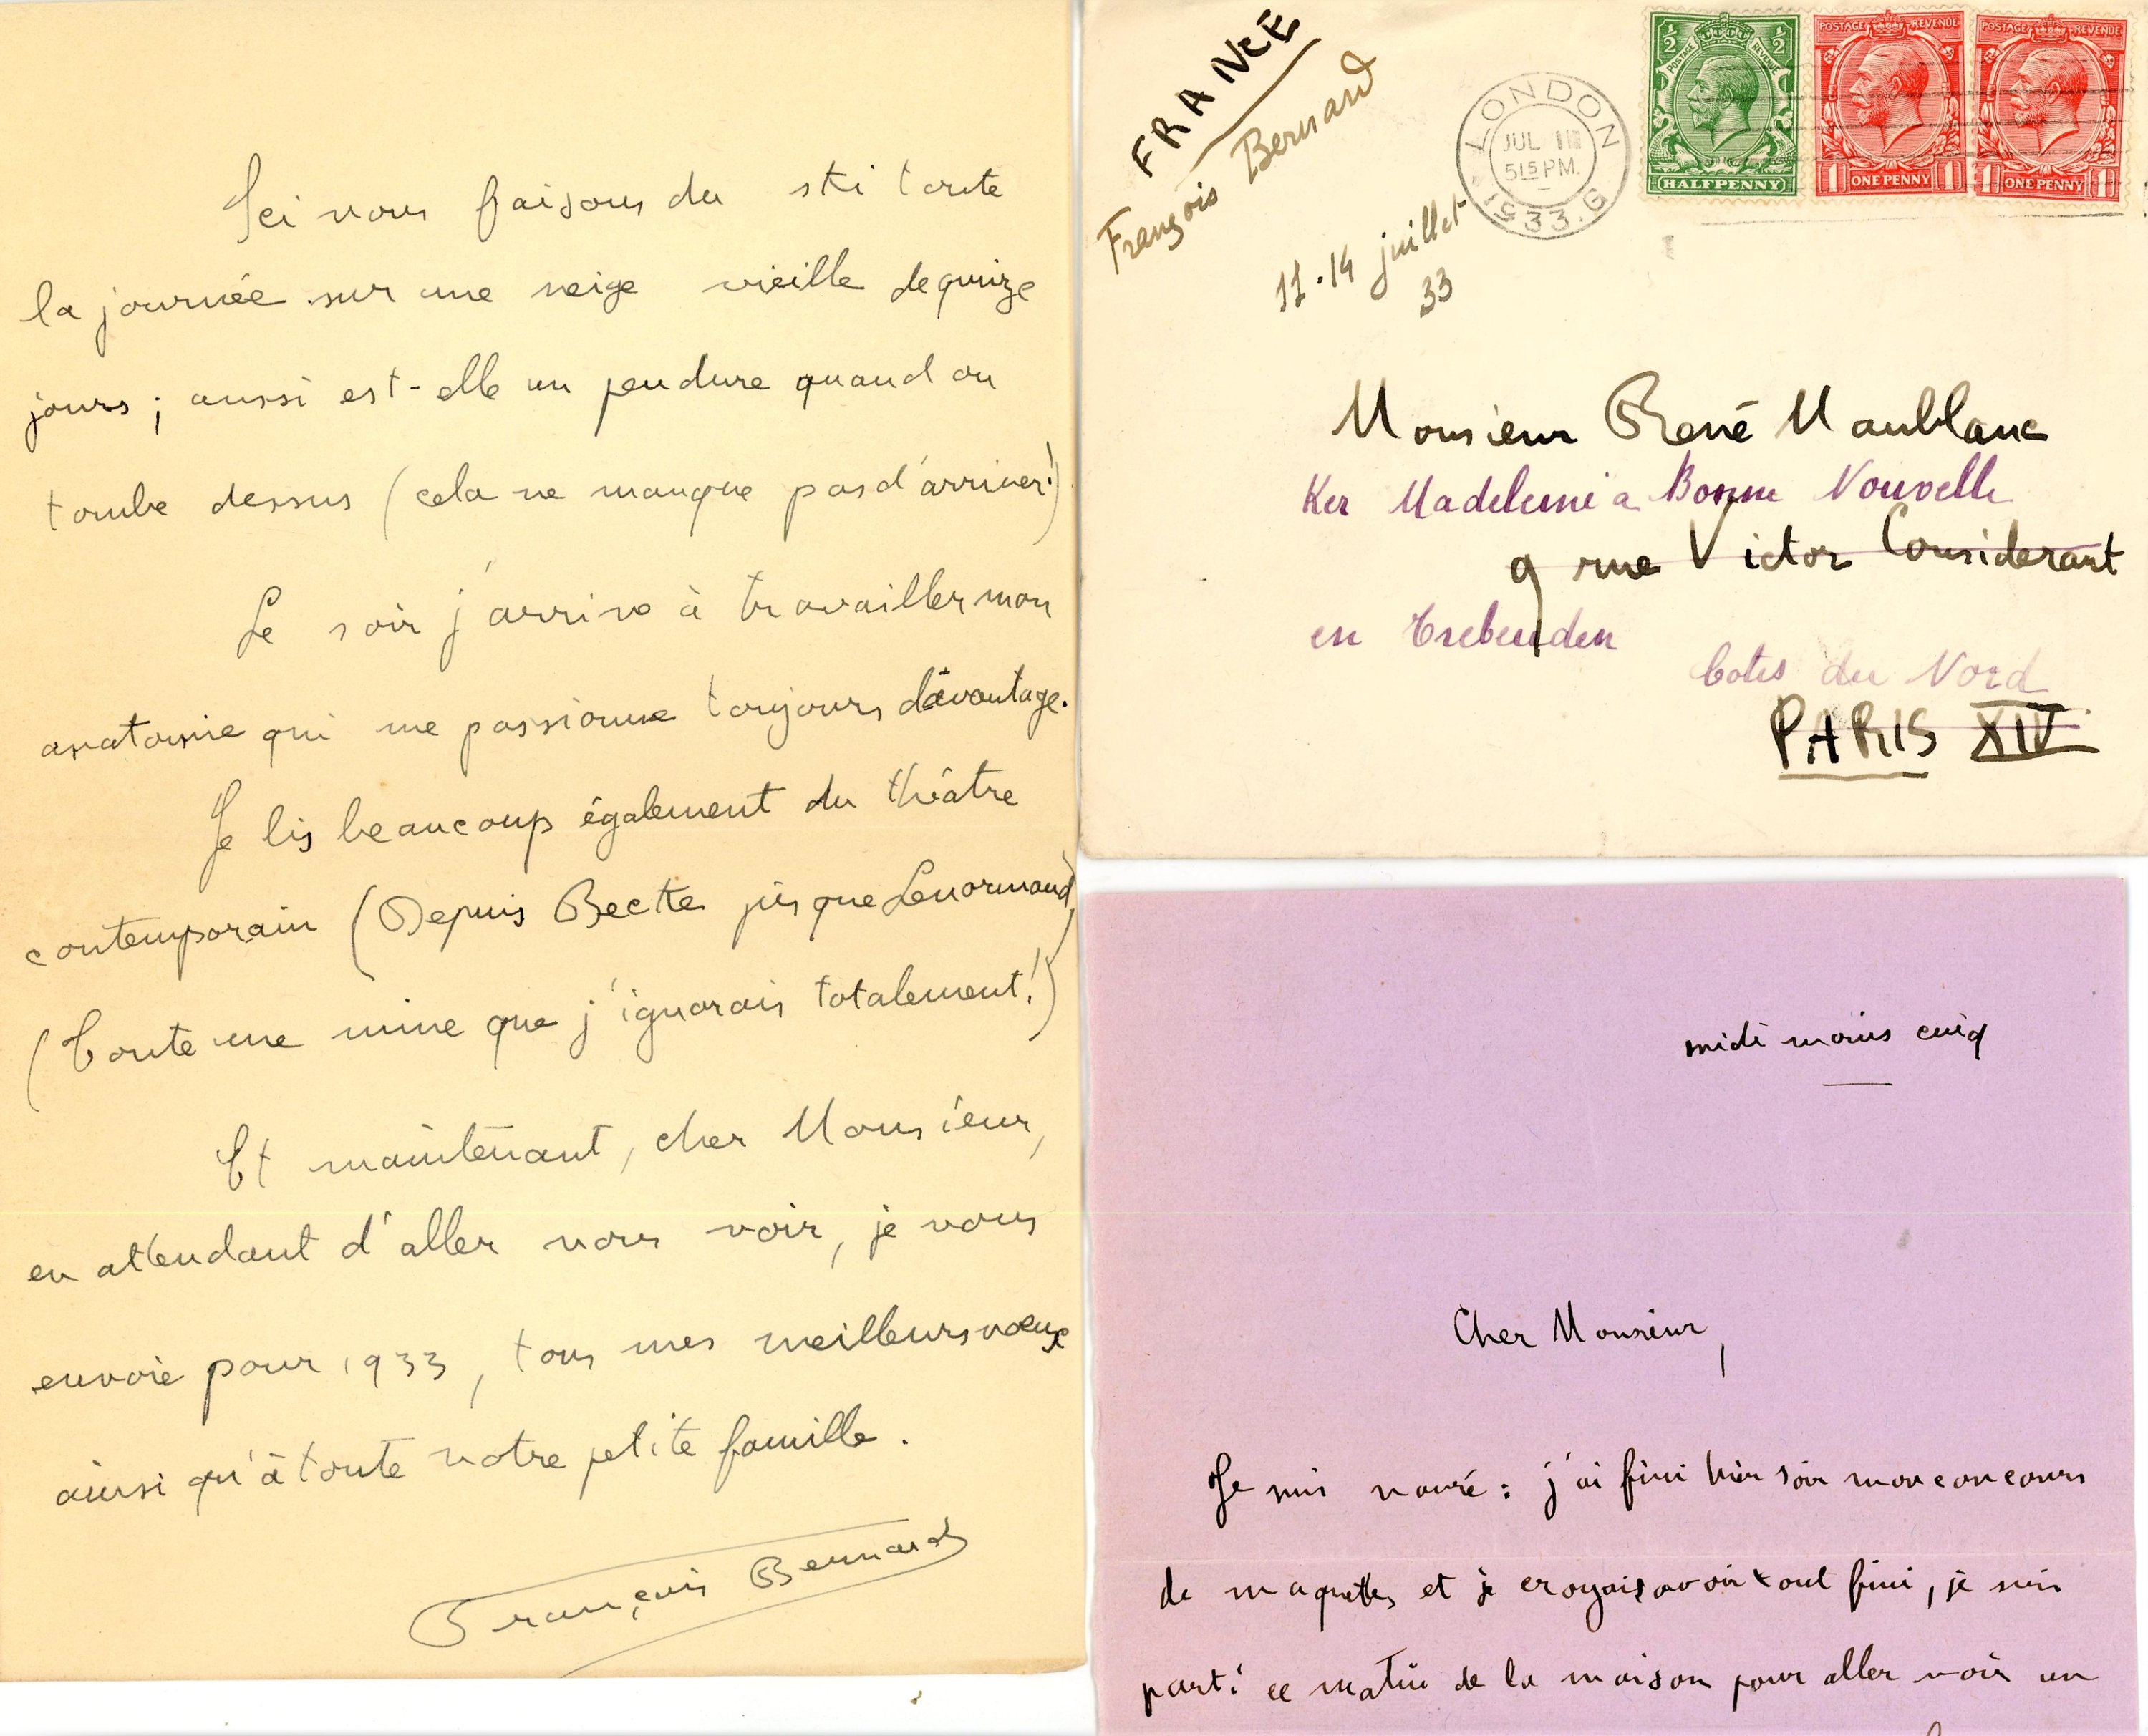 Ici nous faisons du ski toute
la journée sur une neige vieille de quinze
jours ; aussi est-elle un peu dure quand on
tombe dessus (cela ne manque pas d'arriver!)
Le soir j'arrive à travailler mon
anatomie qui me passionne toujours davantage.
Je lis beaucoup également du théâtre
contemporain (Depuis Becque jusque Lenormand)
(Toute une mine que j'ignorais totalement!)
Et maintenant, cher Monsieur,
en attendant d'aller vous voir, je vous
envoie pour 1933, tous mes meilleurs vœux
ainsi qu'à toute votre petite famille.
François Bernard
FRANCE
François Bernard
11.14 juillet
33
LONDON
JUL 11
5 15 PM.
1933. G
½ ½
POSTAGE REVENUE
HALFPENNY
POSTAGE REVENUE
1 ONE PENNY 1
POSTAGE REVENUE
1 ONE PENNY 1
Monsieur René Maublanc
Ker Madeleine à Bonne Nouvelle
9 rue Victor Considerant
en Trebeurden
Cotes du Nord
PARIS XIV
midi moins cinq
Cher Monsieur,
Je suis navré : j'ai fini hier soir mon concours
de maquettes et je croyais avoir tout fini, je suis
parti ce matin de la maison pour aller voir un